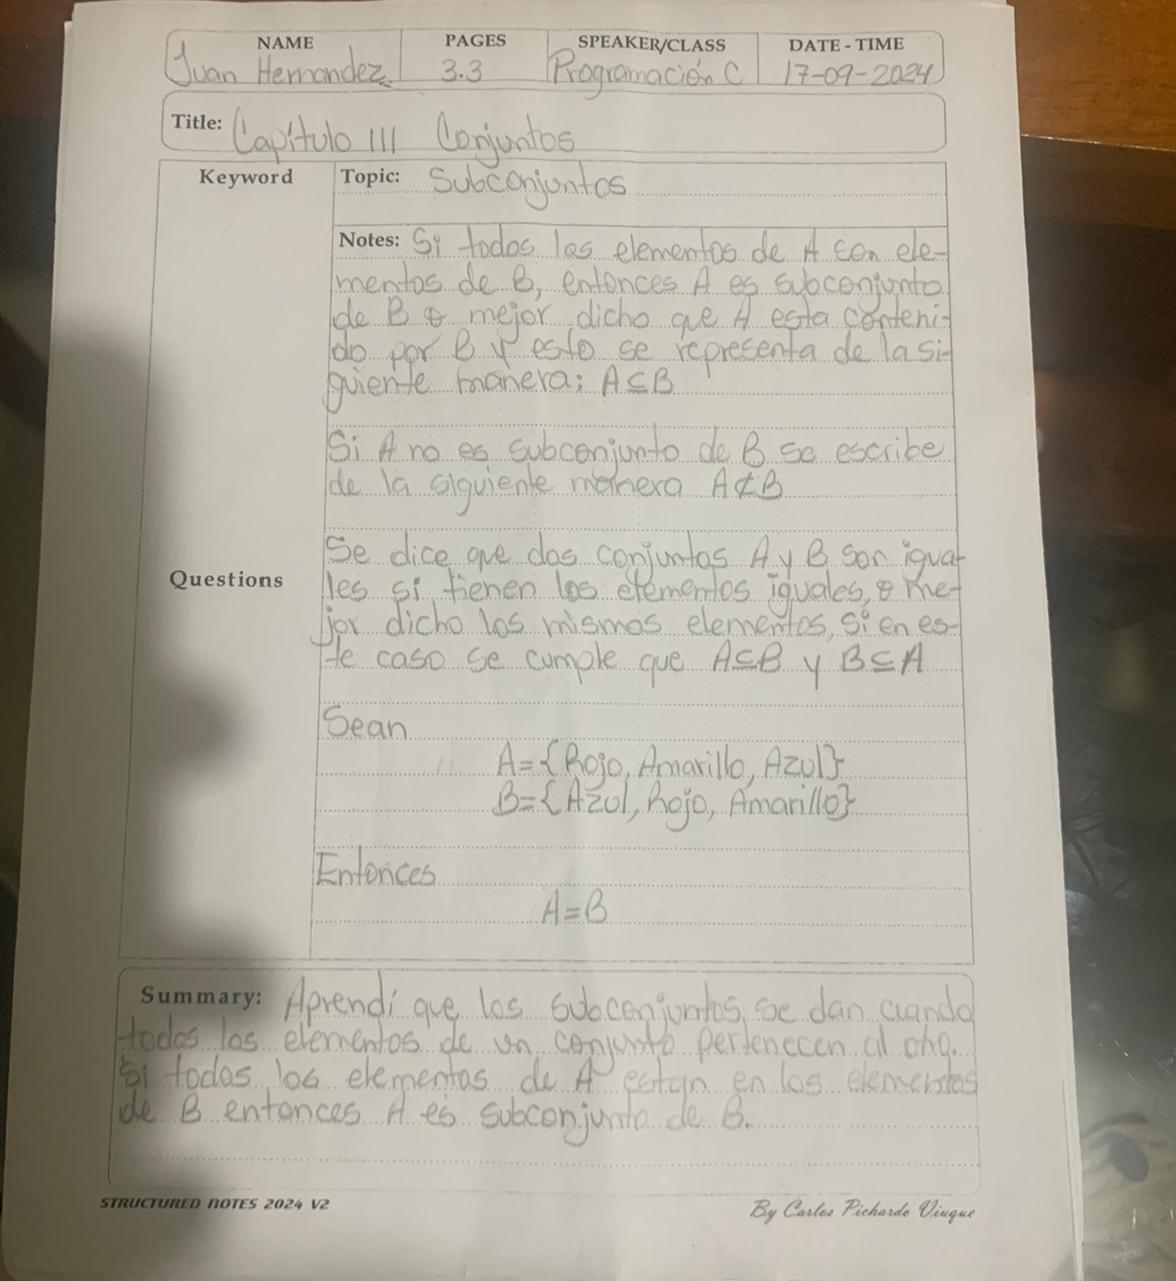 NAME PAGES SPEAKER/CLASS DATE - TIME
Juan Hernandez 3.3 Programación C 17-09-2024
Title: Capítulo III Conjuntos
Keyword Topic: Subconjuntos
Notes: Si todos los elementos de A son ele-
mentos de B, entonces A es subconjunto
de B o mejor dicho que A esta conteni-
do por B y esto se representa de la si-
guiente manera: A⊆B
Si A no es subconjunto de B se escribe
de la siguiente manera A⊄B
Se dice que dos conjuntos A y B son igua-
Questions
les si tienen los elementos iguales, o me-
jor dicho los mismos elementos, si en es-
te caso se cumple que A⊆B y B⊆A
Sean
A={Rojo, Amarillo, Azul}
B={Azul, Rojo, Amarillo}
Entonces
A=B
Summary: Aprendí que los subconjuntos se dan cuando
todos los elementos de un conjunto pertenecen al otro.
Si todos los elementos de A estan en los elementos
de B entonces A es subconjunto de B.
STRUCTURED NOTES 2024 V2 By Carlos Pichardo Viuque